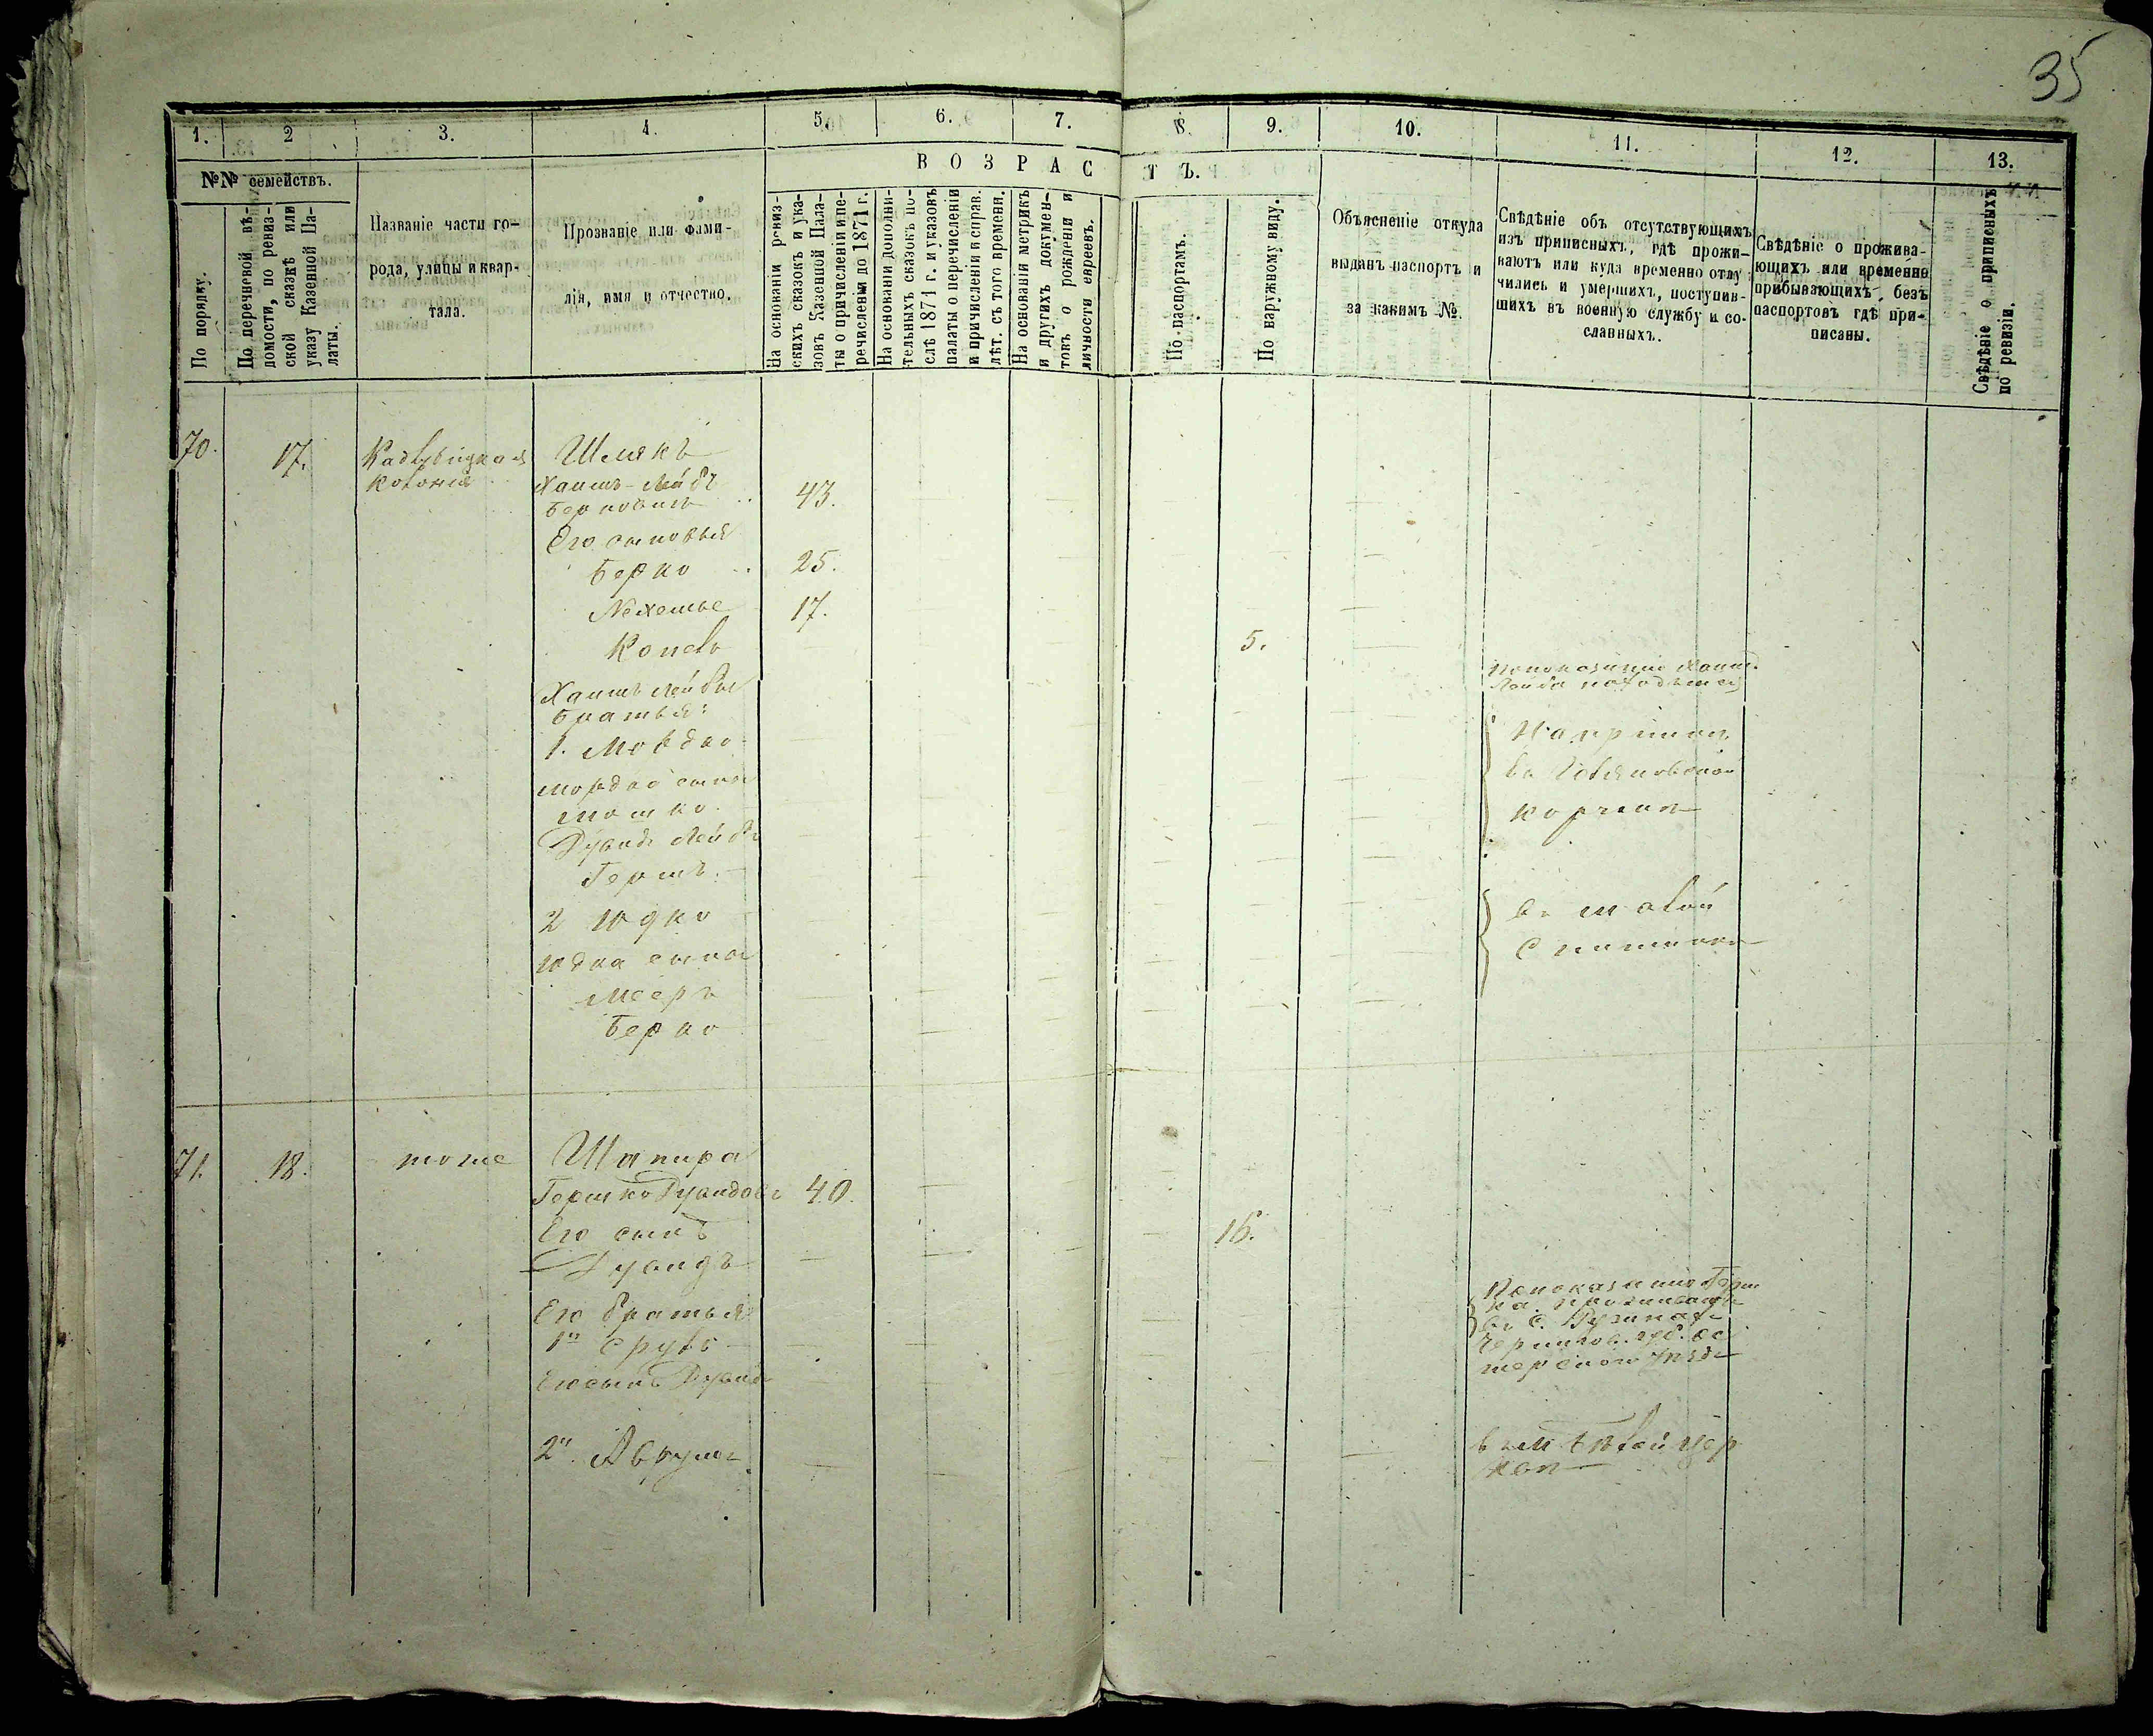 35
1. 2 3. 4. 5. 6. 7. 8. 9. 10. 11. 12. 13.
№№ семействъ.
В О З Р А С Т Ъ.
По порядку.
По перечневой вѣ-
домости, по ревиз-
ской сказкѣ или
указу Казенной Па-
латы.
Названіе части го-
рода, улицы и квар-
тала.
Прозваніе или фами-
лія, имя и отчество.
На основаніи ревиз-
скихъ сказокъ и ука-
зовъ Казенной Пала-
ты о причисленіи и пе-
речисленіи до 1871 г.
На основаніи дополни-
тельныхъ сказокъ по-
слѣ 1871 г. и указовъ
палаты о перечисленіи
и причисленіи и справ.
лѣт. съ того времени.
На основаніи метрикъ
и другихъ докумен-
товъ о рожденіи и
личности евреевъ.
По паспортамъ.
По наружному виду.
Объясненіе откуда
выданъ паспортъ и
за какимъ №.
Свѣдѣніе объ отсутствующихъ
изъ приписныхъ, гдѣ прожи-
ваютъ или куда временно отлу
чились и умершихъ, поступив-
шихъ въ военную службу и со-
сланныхъ.
Свѣдѣніе о прожива-
ющихъ или временно
прибывающихъ, безъ
паспортовъ гдѣ при-
писаны.
Свѣдѣніе о приписныхъ
по ревизіи.
70. 17. колонія
Хаимъ-Лейбъ
Берковичъ 43.
Его сыновья
Берко 25.
17.
Копель 5.
Хаимъ Лейбы
братья:
1. Мордко
Мордко сыновья
Мошко
Дувидъ Лейбъ
Гершъ
2 Юдко
Юдка сыновья
Мееръ
Берко
въ
корчмѣ
въ малой
71. 18. тоже Шапира
Гершко Дувидовъ 40.
Его сынъ
Дувидъ 16.
Его братья
1й Сруль
Его сынъ Дувидъ
2й Аврумъ
По показанію Герш
ка проживаетъ
въ с.
Чернигов. губ. Ос
терского уѣзда
въ м Бѣлой Цер
кви